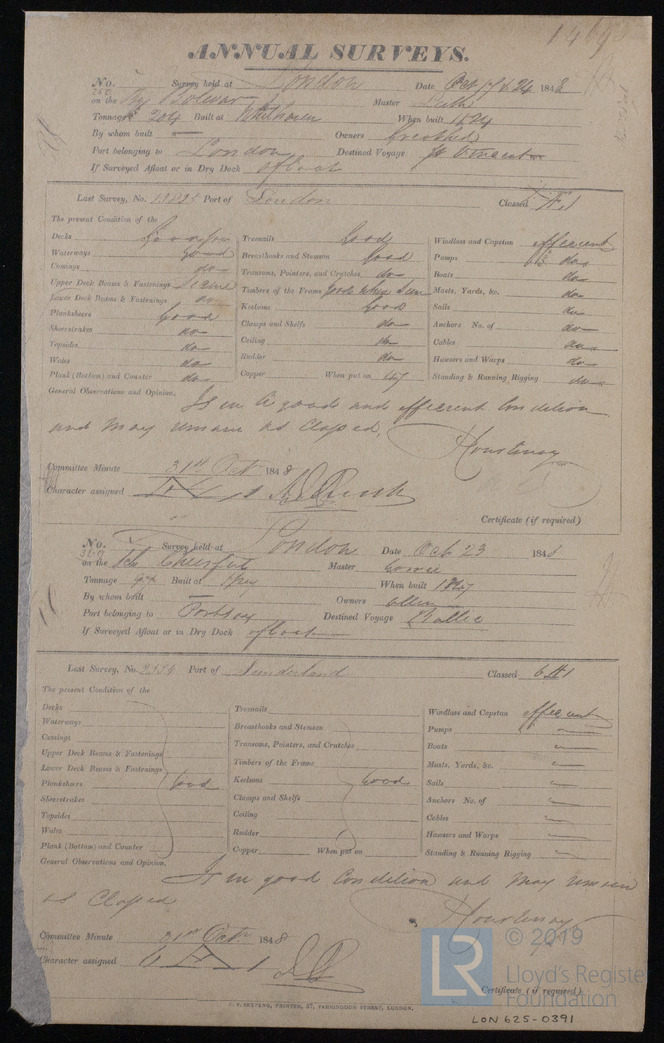 ANNUAL SURVEYS.
No. Survey held at London Date Oct 17 & 24 1848
on the Bolivar Master
Tonnage 204 Built at Whithaven When built 1824
By whom built — Owners
Port belonging to London Destined Voyage St Vincent
If Surveyed Afloat or in Dry Dock afloat
Last Survey, No. Port of London Classed Æ 1
The present Condition of the
Decks Good
Waterways Good
Comings do
Upper Deck Beams & Fastenings
Lower Deck Beams & Fastenings do
Planksheers Good
Sheerstrakes do
Topsides do
Wales do
Plank (Bottom) and Counter do
Treenails Good
Breasthooks and Stemson Good
Transoms, Pointers, and Crutches do
Timbers of the Frame good where seen
Keelsons Good
Clamps and Shelfs do
Ceiling do
Rudder do
Copper When put on 147
Windlass and Capstan efficient
Pumps do
Boats do
Masts, Yards, &c. do
Sails do
Anchors No. of do
Cables do
Hawsers and Warps do
Standing & Running Rigging do
General Observations and Opinion. Is in a good and efficient Condition
and may remain as Classed
Courtenay
Committee Minute 31st Oct 1848
Character assigned Æ 1
Certificate (if required)
No. Survey held at London Date Oct 23 1848
on the Sch Cheerful Master Cowie
Tonnage Built at Spey When built 1847
By whom built — Owners
Port belonging to Portsoy Destined Voyage Baltic
If Surveyed Afloat or in Dry Dock afloat
Last Survey, No. Port of Sunderland Classed 6 A 1
The present Condition of the
Decks
Waterways
Comings
Upper Deck Beams & Fastenings
Lower Deck Beams & Fastenings
Planksheers Good
Sheerstrakes
Topsides
Wales
Plank (Bottom) and Counter
Treenails
Breasthooks and Stemson
Transoms, Pointers, and Crutches
Timbers of the Frame
Keelsons Good
Clamps and Shelfs
Ceiling
Rudder
Copper When put on
Windlass and Capstan efficient
Pumps
Boats
Masts, Yards, &c.
Sails
Anchors No. of
Cables
Hawsers and Warps
Standing & Running Rigging
General Observations and Opinion. Is in good Condition and may remain
as Classed
Courtenay
Committee Minute 31st Oct 1848
Character assigned 6 A 1
Certificate (if required)
PRINTER, 57, FARRINGDON STREET, LONDON.
LR © 2019
Lloyd's Register
Foundation
LON 625-0391